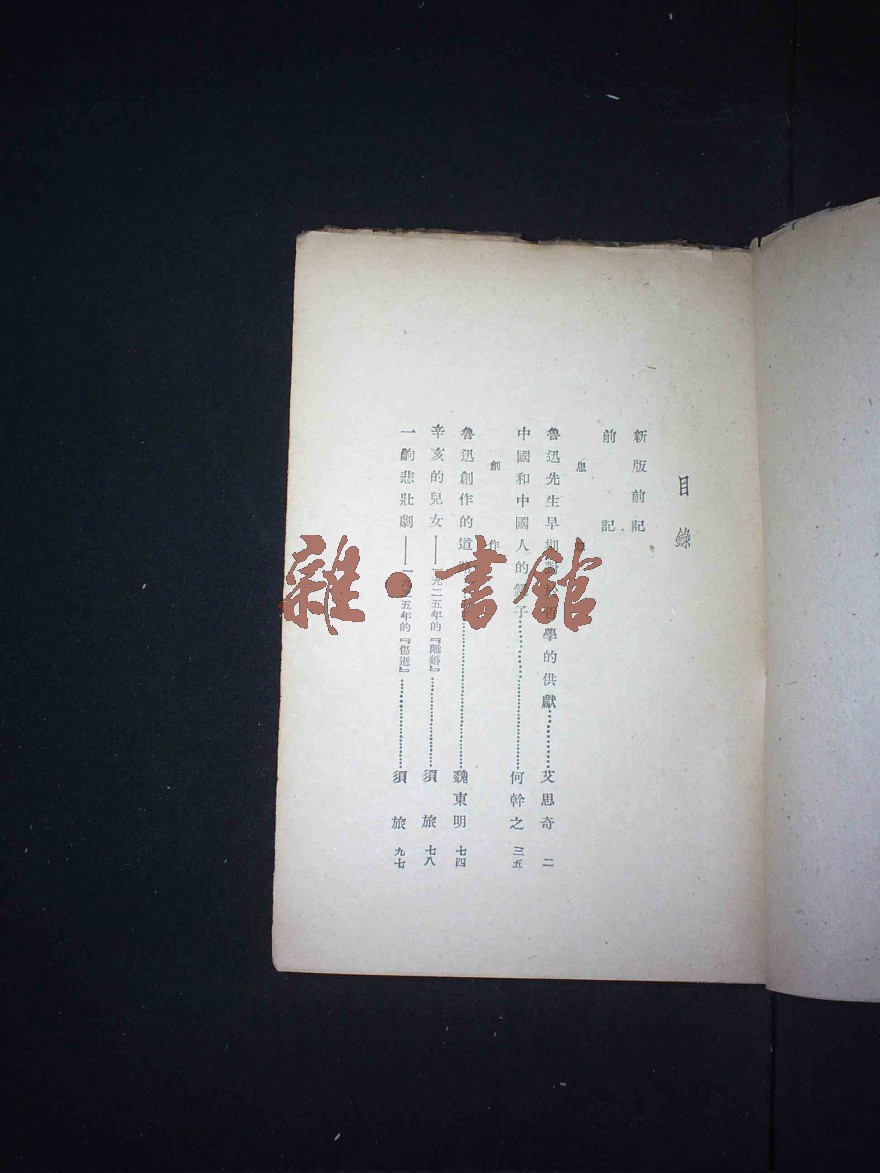 目錄
新版前記
前記
思想
魯迅先生早期對於哲學的供獻……艾思奇 二
中國和中國人的鏡子……何幹之 三五
創作
魯迅創作的道……魏東明 七四
辛亥的兒女——一九二五年的『離婚』……須旅 七八
一齣悲壯劇——一九二五年的『傷逝』……須旅 九七
雜·書館